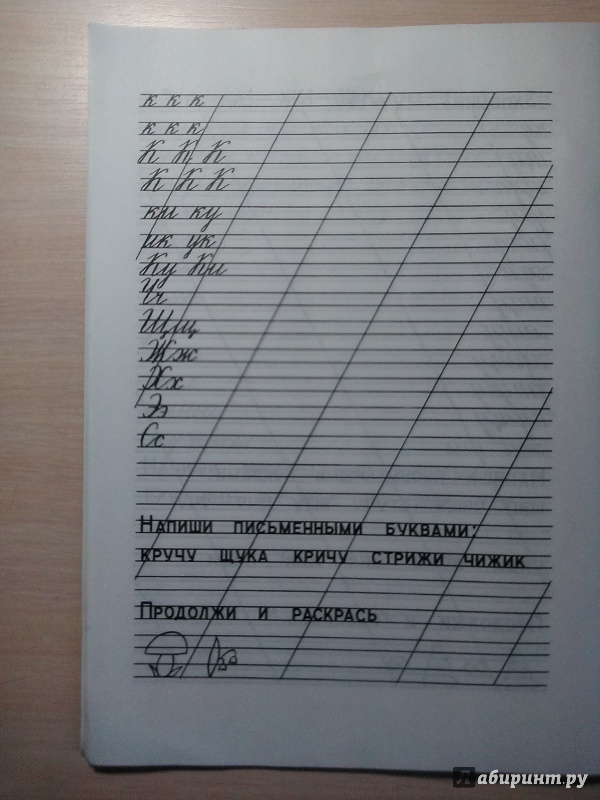 к к к
к к к
К К К
К К К
ки ку
ик ук
Ку Ки
Чч
Щщ
Жж
Хх
Ээ
Сс
НАПИШИ ПИСЬМЕННЫМИ БУКВАМИ:
КРУЧУ ЩУКА КРИЧУ СТРИЖИ ЧИЖИК
ПРОДОЛЖИ И РАСКРАСЬ
Лабиринт.ру